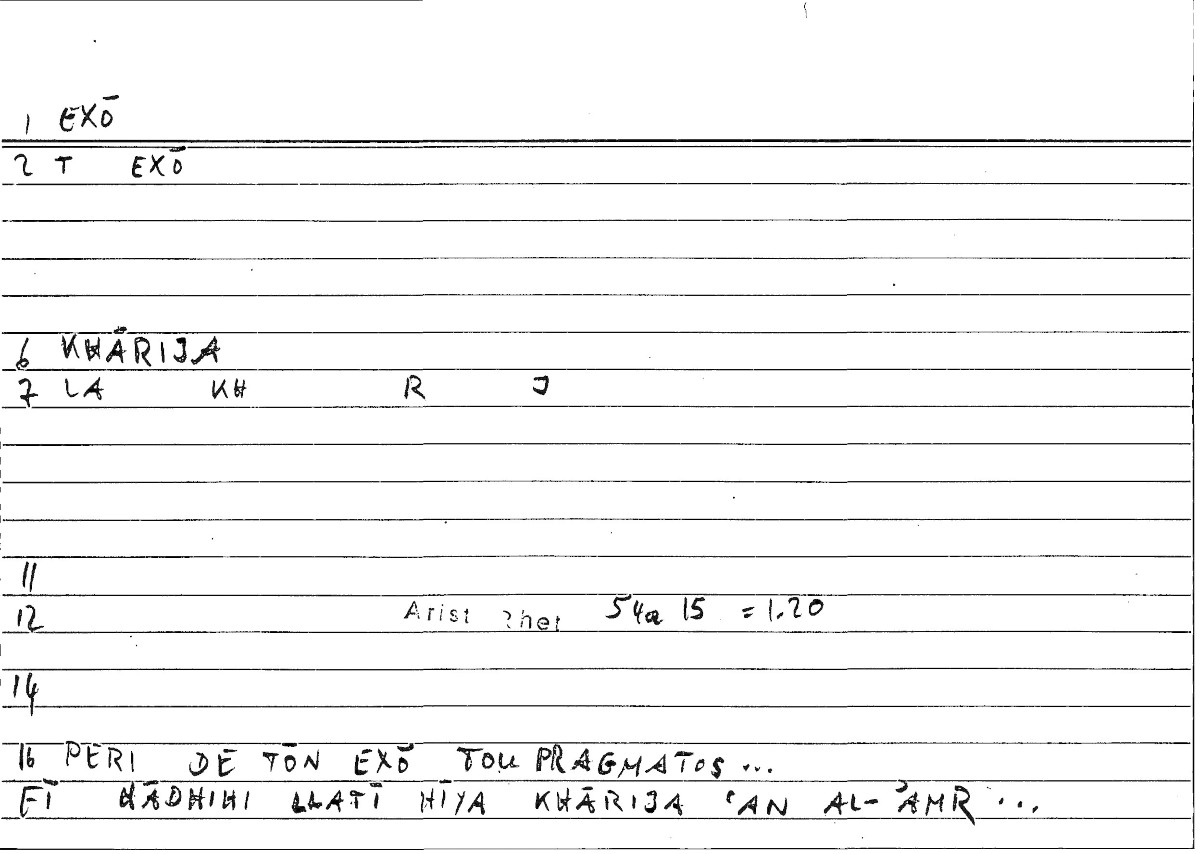 1 EXŌ
2 T EXŌ
6 KHĀRIJA
7 LA KH R J
11
12 Arist Rhet 54a 15 = 1.20
14
16 PERI DE TŌN EXŌ TOU PRAGMATOS ...
FĪ HĀDHIHI LLATĪ HĪYA KHĀRIJA ʿAN AL-ʾAMR ...